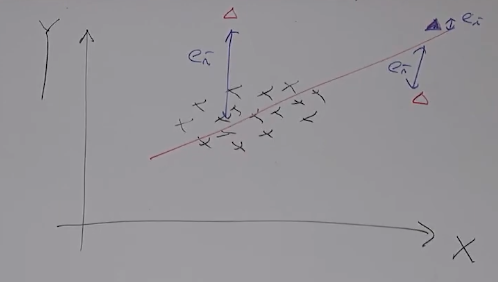 Y
eᵢ
eᵢ
eᵢ
X